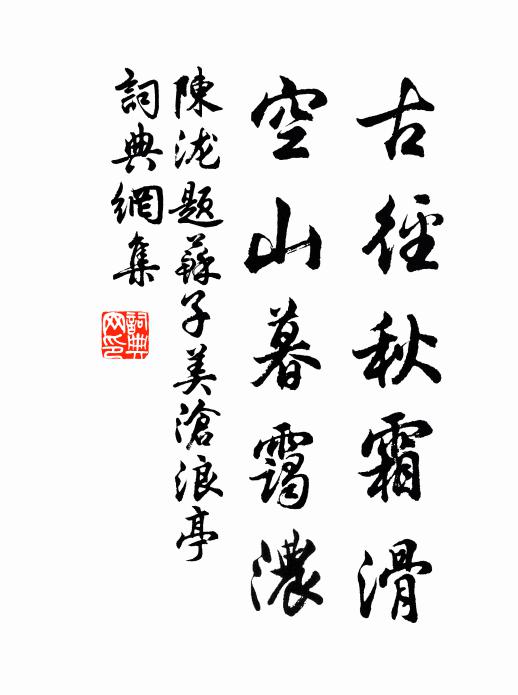 古徑秋霜滑
空山暮靄濃
陳泷題蘇子美滄浪亭
詞典網集
詞典網印